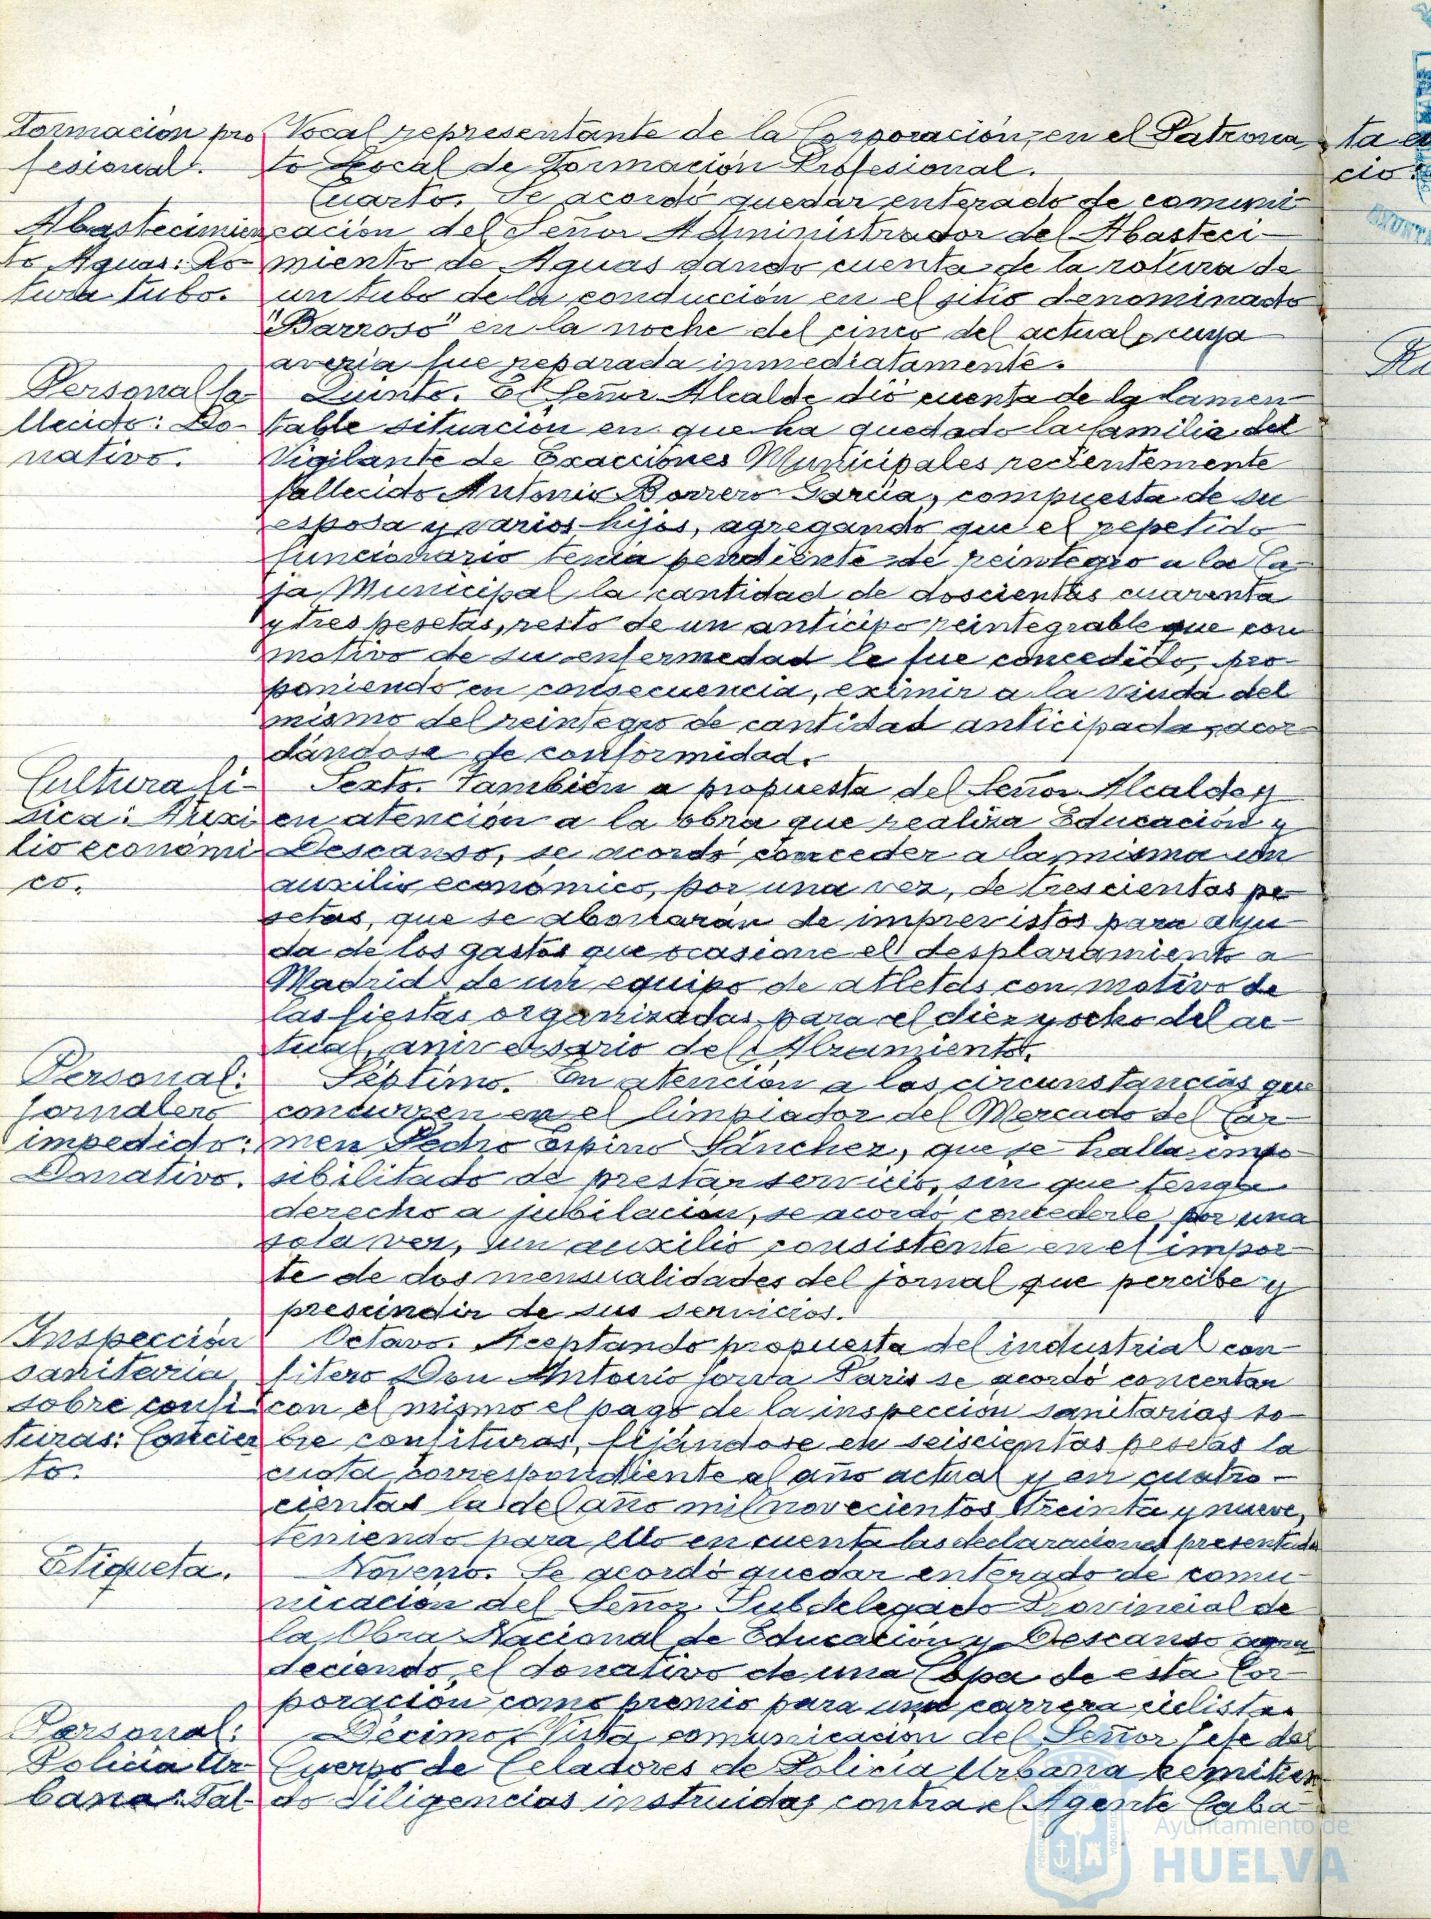 Formación pro
fesional.
Vocal representante de la Corporación, en el Patrona
to Local de Formación Profesional.
Cuarto. Se acordó quedar enterado de comuni-
Abastecimien
to Aguas: Ro-
tura tubo.
cación del Señor Administrador del Abasteci-
miento de Aguas dando cuenta de la rotura de
un tubo de la conducción en el sitio denominado
"Barroso" en la noche del cinco del actual, cuya
avería fue reparada inmediatamente.
Personal fa-
llecido: Do-
nativo.
Quinto. El Señor Alcalde dió cuenta de la lamen-
table situación en que ha quedado la familia del
Vigilante de Exacciones Municipales recientemente
fallecido Antonio Borrero García, compuesta de su
esposa y varios hijos, agregando que el repetido
funcionario tenía pendiente de reintegro a la Ca-
ja Municipal la cantidad de doscientas cuarenta
y tres pesetas, resto de un anticipo reintegrable que con
motivo de su enfermedad le fue concedido, pro-
poniendo en consecuencia, eximir a la viuda del
mismo del reintegro de cantidad anticipada, acor-
dándose de conformidad.
Cultura fí-
sica: Auxi
lio económi
co.
Sexto. También a propuesta del Señor Alcalde y
en atención a la obra que realiza Educación y
Descanso, se acordó conceder a la misma un
auxilio económico, por una vez, de trescientas pe-
setas, que se abonarán de imprevistos para ayu-
da de los gastos que ocasione el desplazamiento a
Madrid de un equipo de atletas con motivo de
las fiestas organizadas para el diez y ocho del ac-
tual, aniversario del Alzamiento.
Personal:
Jornalero
impedido:
Donativo.
Séptimo. En atención a las circunstancias que
concurren en el limpiador del Mercado del Car-
men Pedro Espino Sánchez, que se halla impo-
sibilitado de prestar servicio, sin que tenga
derecho a jubilación, se acordó concederle, por una
sola vez, un auxilio consistente en el impor-
te de dos mensualidades del jornal que percibe y
prescindir de sus servicios.
Inspección
sanitaria
sobre confi-
turas: Concier
to.
Octavo. Aceptando propuesta del industrial con-
fitero Don Antonio Jorva Paris se acordó concertar
con el mismo el pago de la inspección sanitarias so-
bre confituras, fijándose en seiscientas pesetas la
cuota correspondiente al año actual y en cuatro-
cientas la del año mil novecientos treinta y nueve,
teniendo para ello en cuenta las declaraciones presentadas
Etiqueta.
Noveno. Se acordó quedar enterado de comu-
nicación del Señor Subdelegado Provincial de
la Obra Nacional de Educación y Descanso agra-
deciendo el donativo de una Copa de esta Cor-
poración como premio para una carrera ciclista.
Personal:
Policía Ur-
bana: Fal-
Décimo. Vista comunicación del Señor Jefe del
Cuerpo de Celadores de Policía Urbana remitien-
do diligencias instruidas contra el Agente Caba-
ta
cio:
Ayuntamiento de
HUELVA